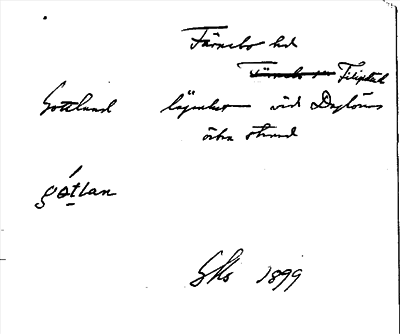 Färnebo hd
Färnebo sn Filipstad
Gottland lägenhet vid Daglösens
östra strand
gótlan
GKs 1899